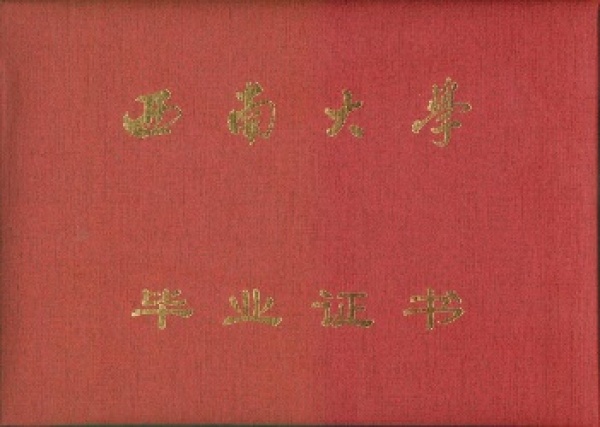 西南大學
毕业证书